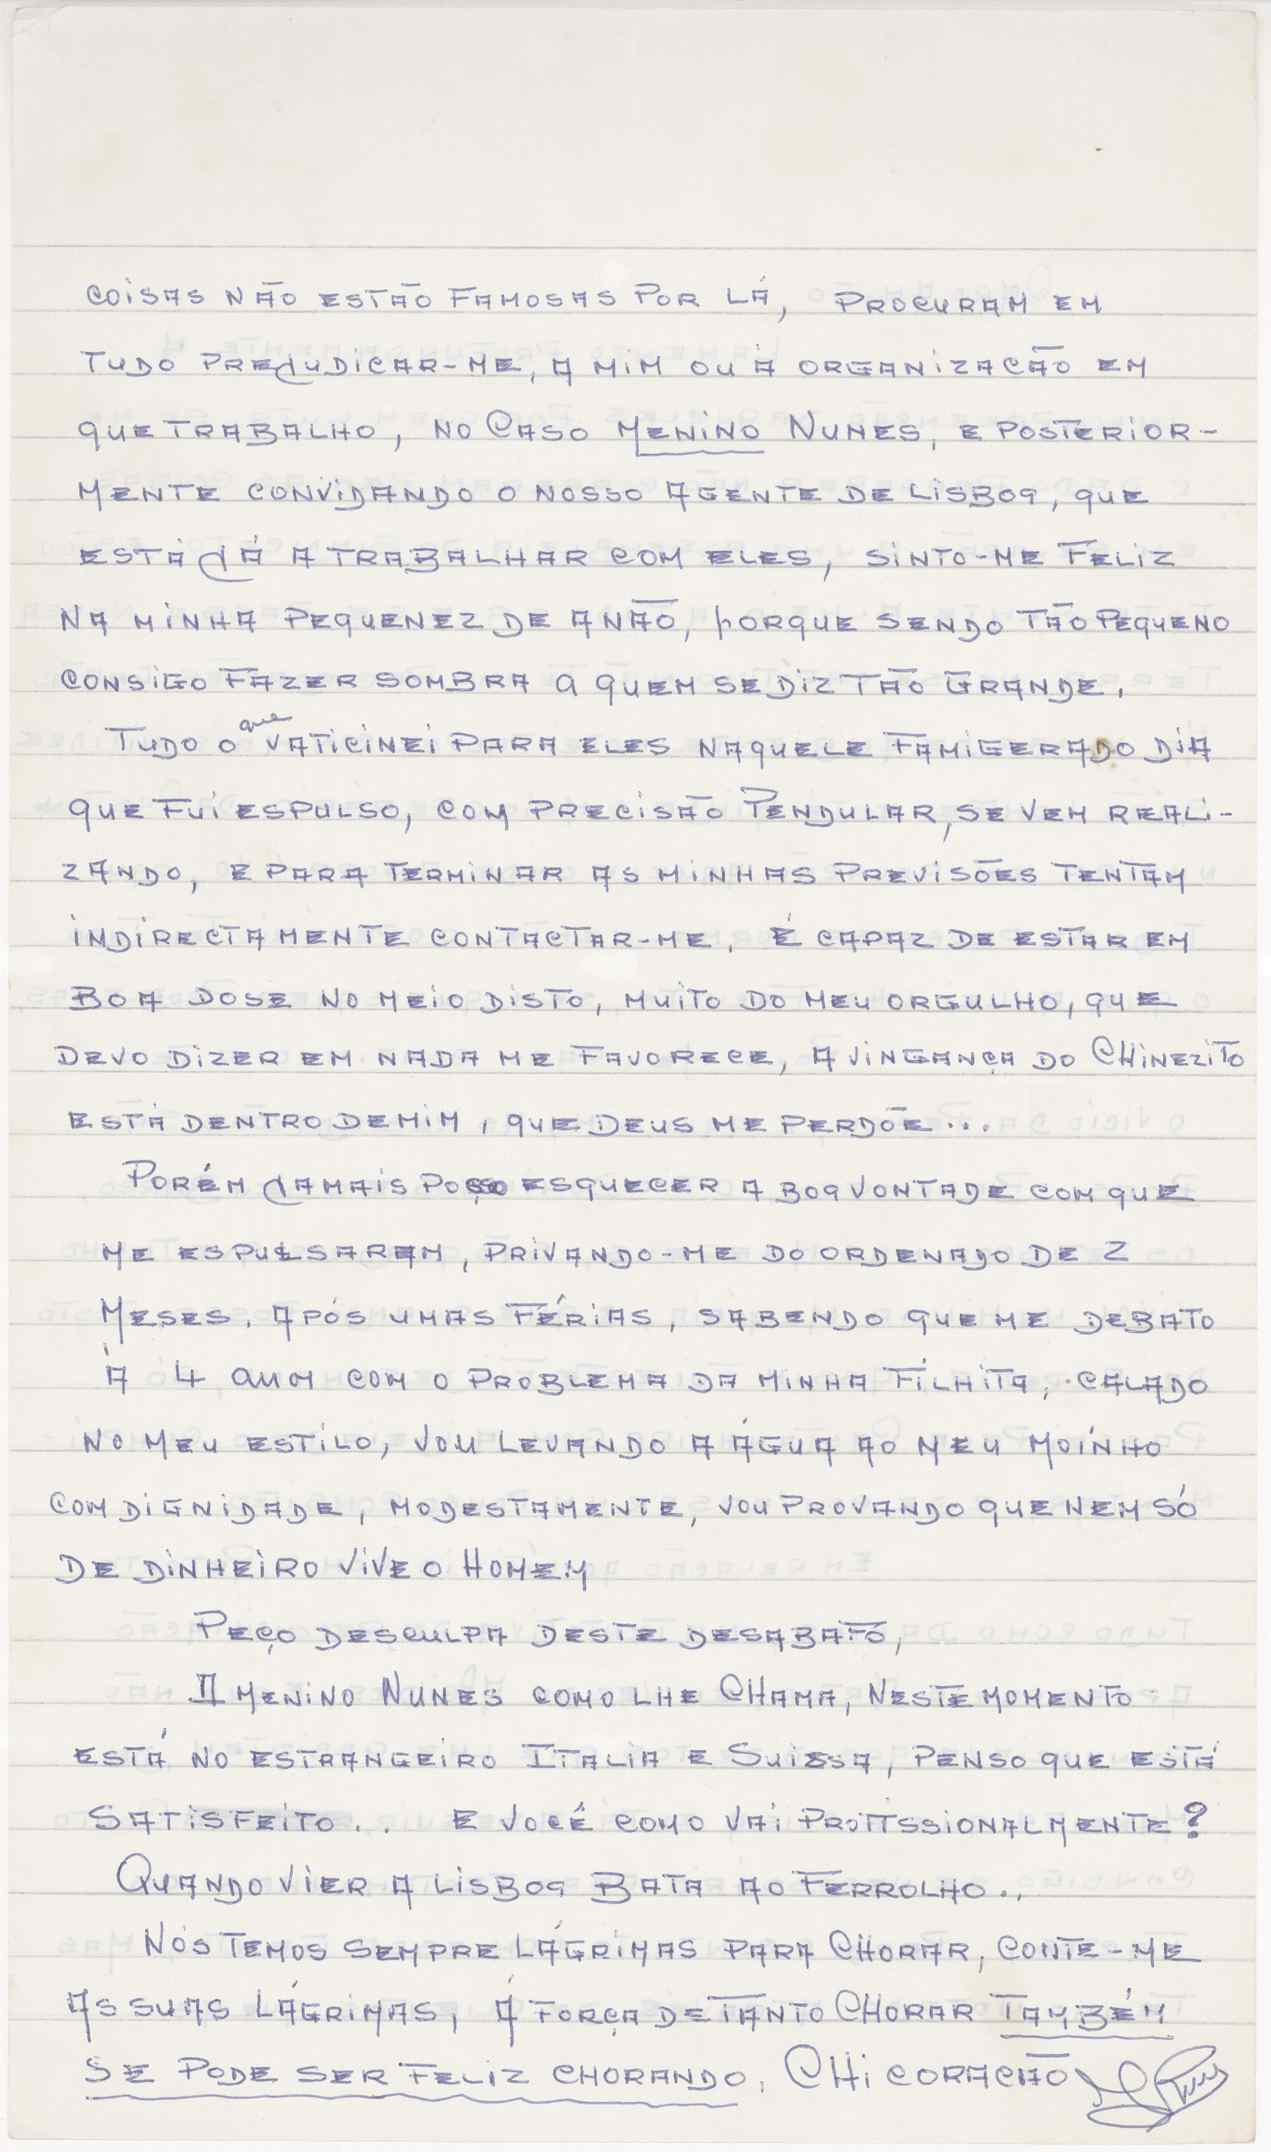 COISAS NÃO ESTÃO FAMOSAS POR LÁ, PROCURAM EM
TUDO PREJUDICAR-ME, A MIM OU À ORGANIZACÃO EM
QUE TRABALHO, NO CASO MENINO NUNES, E POSTERIOR-
MENTE CONVIDANDO O NOSSO AGENTE DE LISBOA, QUE
ESTÁ JÁ A TRABALHAR COM ELES, SINTO-ME FELIZ
NA MINHA PEQUENEZ DE ANÃO, PORQUE SENDO TÃO PEQUENO
CONSIGO FAZER SOMBRA A QUEM SE DIZ TÃO GRANDE.
TUDO O que VATICINEI PARA ELES NAQUELE FAMIGERADO DIA
QUE FUI ESPULSO, COM PRECISÃO PENDULAR, SE VEM REALI-
ZANDO, E PARA TERMINAR AS MINHAS PREVISÕES TENTAM
INDIRECTAMENTE CONTACTAR-ME. É CAPAZ DE ESTAR EM
BOA DOSE NO MEIO DISTO, MUITO DO MEU ORGULHO, QUE
DEVO DIZER EM NADA ME FAVORECE, A VINGANÇA DO CHINEZITO
ESTÁ DENTRO DE MIM, QUE DEUS ME PERDÕE...
PORÉM JAMAIS POSSO ESQUECER A BOA VONTADE COM QUE
ME ESPULSARAM, PRIVANDO-ME DO ORDENADO DE 2
MESES. APÓS UMAS FÉRIAS, SABENDO QUE ME DEBATO
À 4 ANOS COM O PROBLEMA DA MINHA FILHITA, CALADO
NO MEU ESTILO, VOU LEVANDO A ÁGUA AO MEU MOÍNHO
COM DIGNIDADE, MODESTAMENTE, VOU PROVANDO QUE NEM SÓ
DE DINHEIRO VIVE O HOMEM
PEÇO DESCULPA DESTE DESABAFO,
O MENINO NUNES COMO LHE CHAMA, NESTE MOMENTO
ESTÁ NO ESTRANGEIRO ITALIA E SUISSA, PENSO QUE ESTÁ
SATISFEITO.. E VOCÊ COMO VAI PROFISSIONALMENTE?
QUANDO VIER A LISBOA BATA AO FERROLHO..
NÓS TEMOS SEMPRE LÁGRIMAS PARA CHORAR, CONTE-ME
AS SUAS LÁGRIMAS, Á FORÇA DE TANTO CHORAR TAMBÉM
SE PODE SER FELIZ CHORANDO. CHI CORACÃO